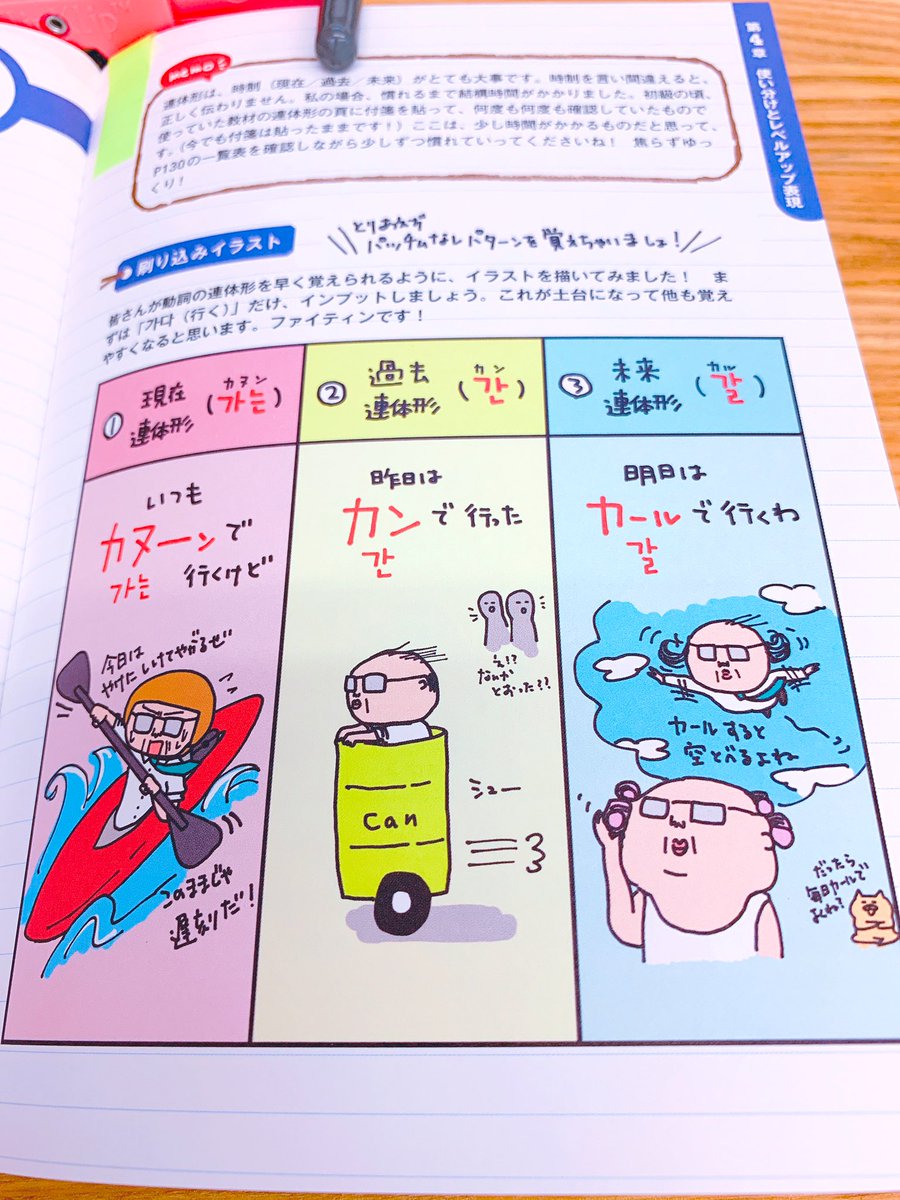 MEMO
連体形は、時制(現在/過去/未来)がとても大事です。時制を言い間違えると、
正しく伝わりません。私の場合、慣れるまで結構時間がかかりました。初級の頃、
使っていた教材の連体形の頁に付箋を貼って、何度も何度も確認していたもので
す。(今でも付箋は貼ったままです!)ここは、少し時間がかかるものだと思って、
P130の一覧表を確認しながら少しずつ慣れていってくださいね! 焦らずゆっ
くり!
第4章 使い分けとレベルアップ表現
刷り込みイラスト
とりあえず
パッチムなしパターンを覚えちゃいましょ!
皆さんが動詞の連体形を早く覚えられるように、イラストを描いてみました! ま
ずは「가다(行く)」だけ、インプットしましょう。これが土台になって他も覚え
やすくなると思います。ファイティンです!
① 現在
連体形
カヌン
(가는)
② 過去
連体形
カン
(간)
③ 未来
連体形
カル
(갈)
いつも
カヌーンで
가는 行くけど
今日は
やけにしけてやがるぜ
このままじゃ
遅刻だ!
昨日は
カンで行った
간
え!?
なんか
とおった??
Can
シュー
明日は
カールで行くわ
갈
カールすると
空とべるよね
だったら
毎日カールで
よくね?